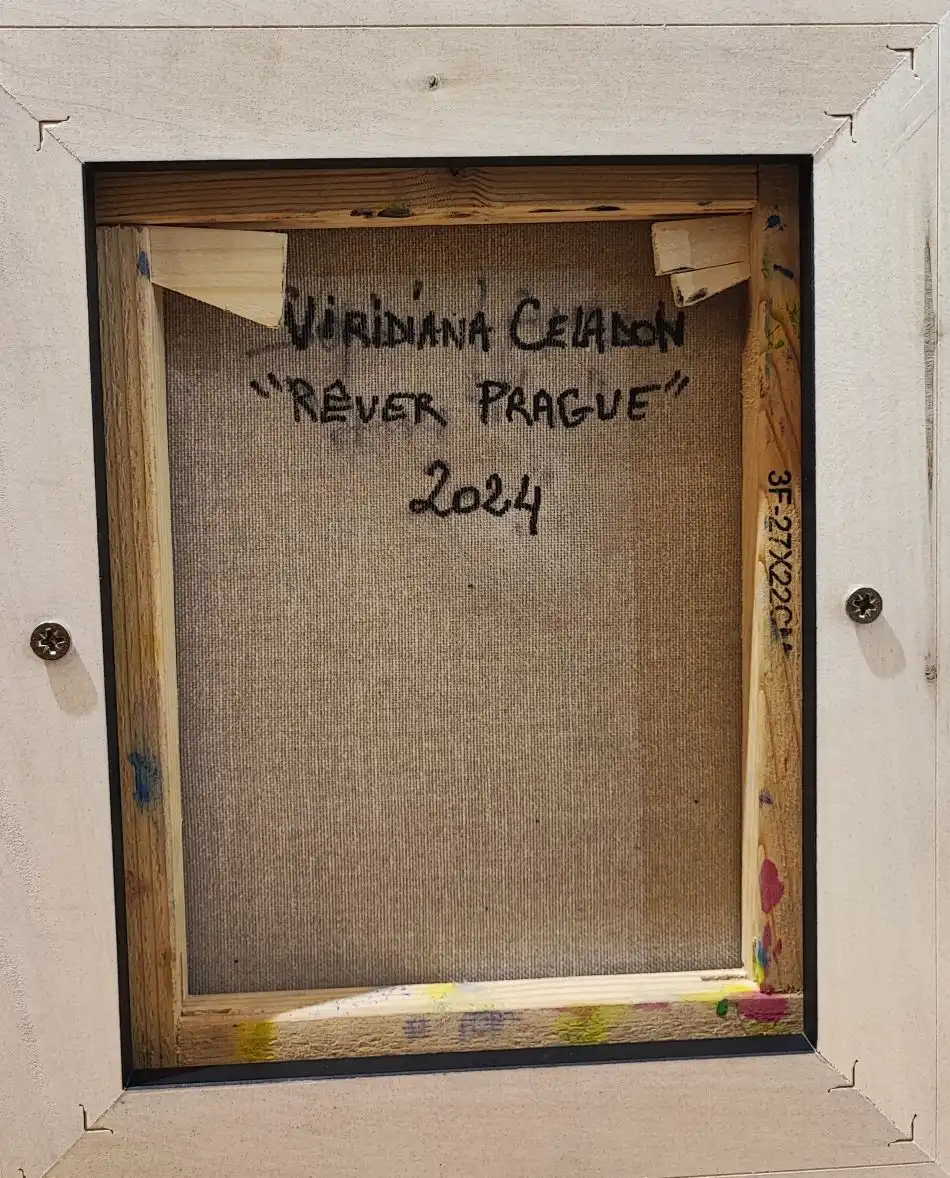 VIRIDIANA CELADON
"RÊVER PRAGUE"
2024
3F-27X22CM